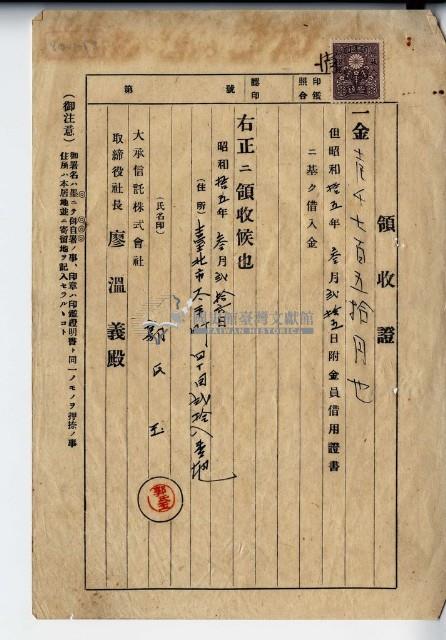 領收證
一金壹千七百五拾円也
但昭和拾五年叁月貳拾五日附金員借用證書
ニ基ク借入金
右正ニ領收候也
昭和拾五年叁月貳拾 日
(住所)臺北市太平町四丁目貳拾八番地
(氏名印)郭氏玉
大承信託株式會社
取締役社長 廖溫義殿
(御注意)
御署名ハ墨ニテ御自署ノ事、印章ハ印鑑證明書ト同一ノモノヲ押捺ノ事
住所ハ本居地並ニ寄留地ヲ記入セラルルコト
印鑑
照合
認印
第 號
國史館臺灣文獻館
TAIWAN HISTORICA